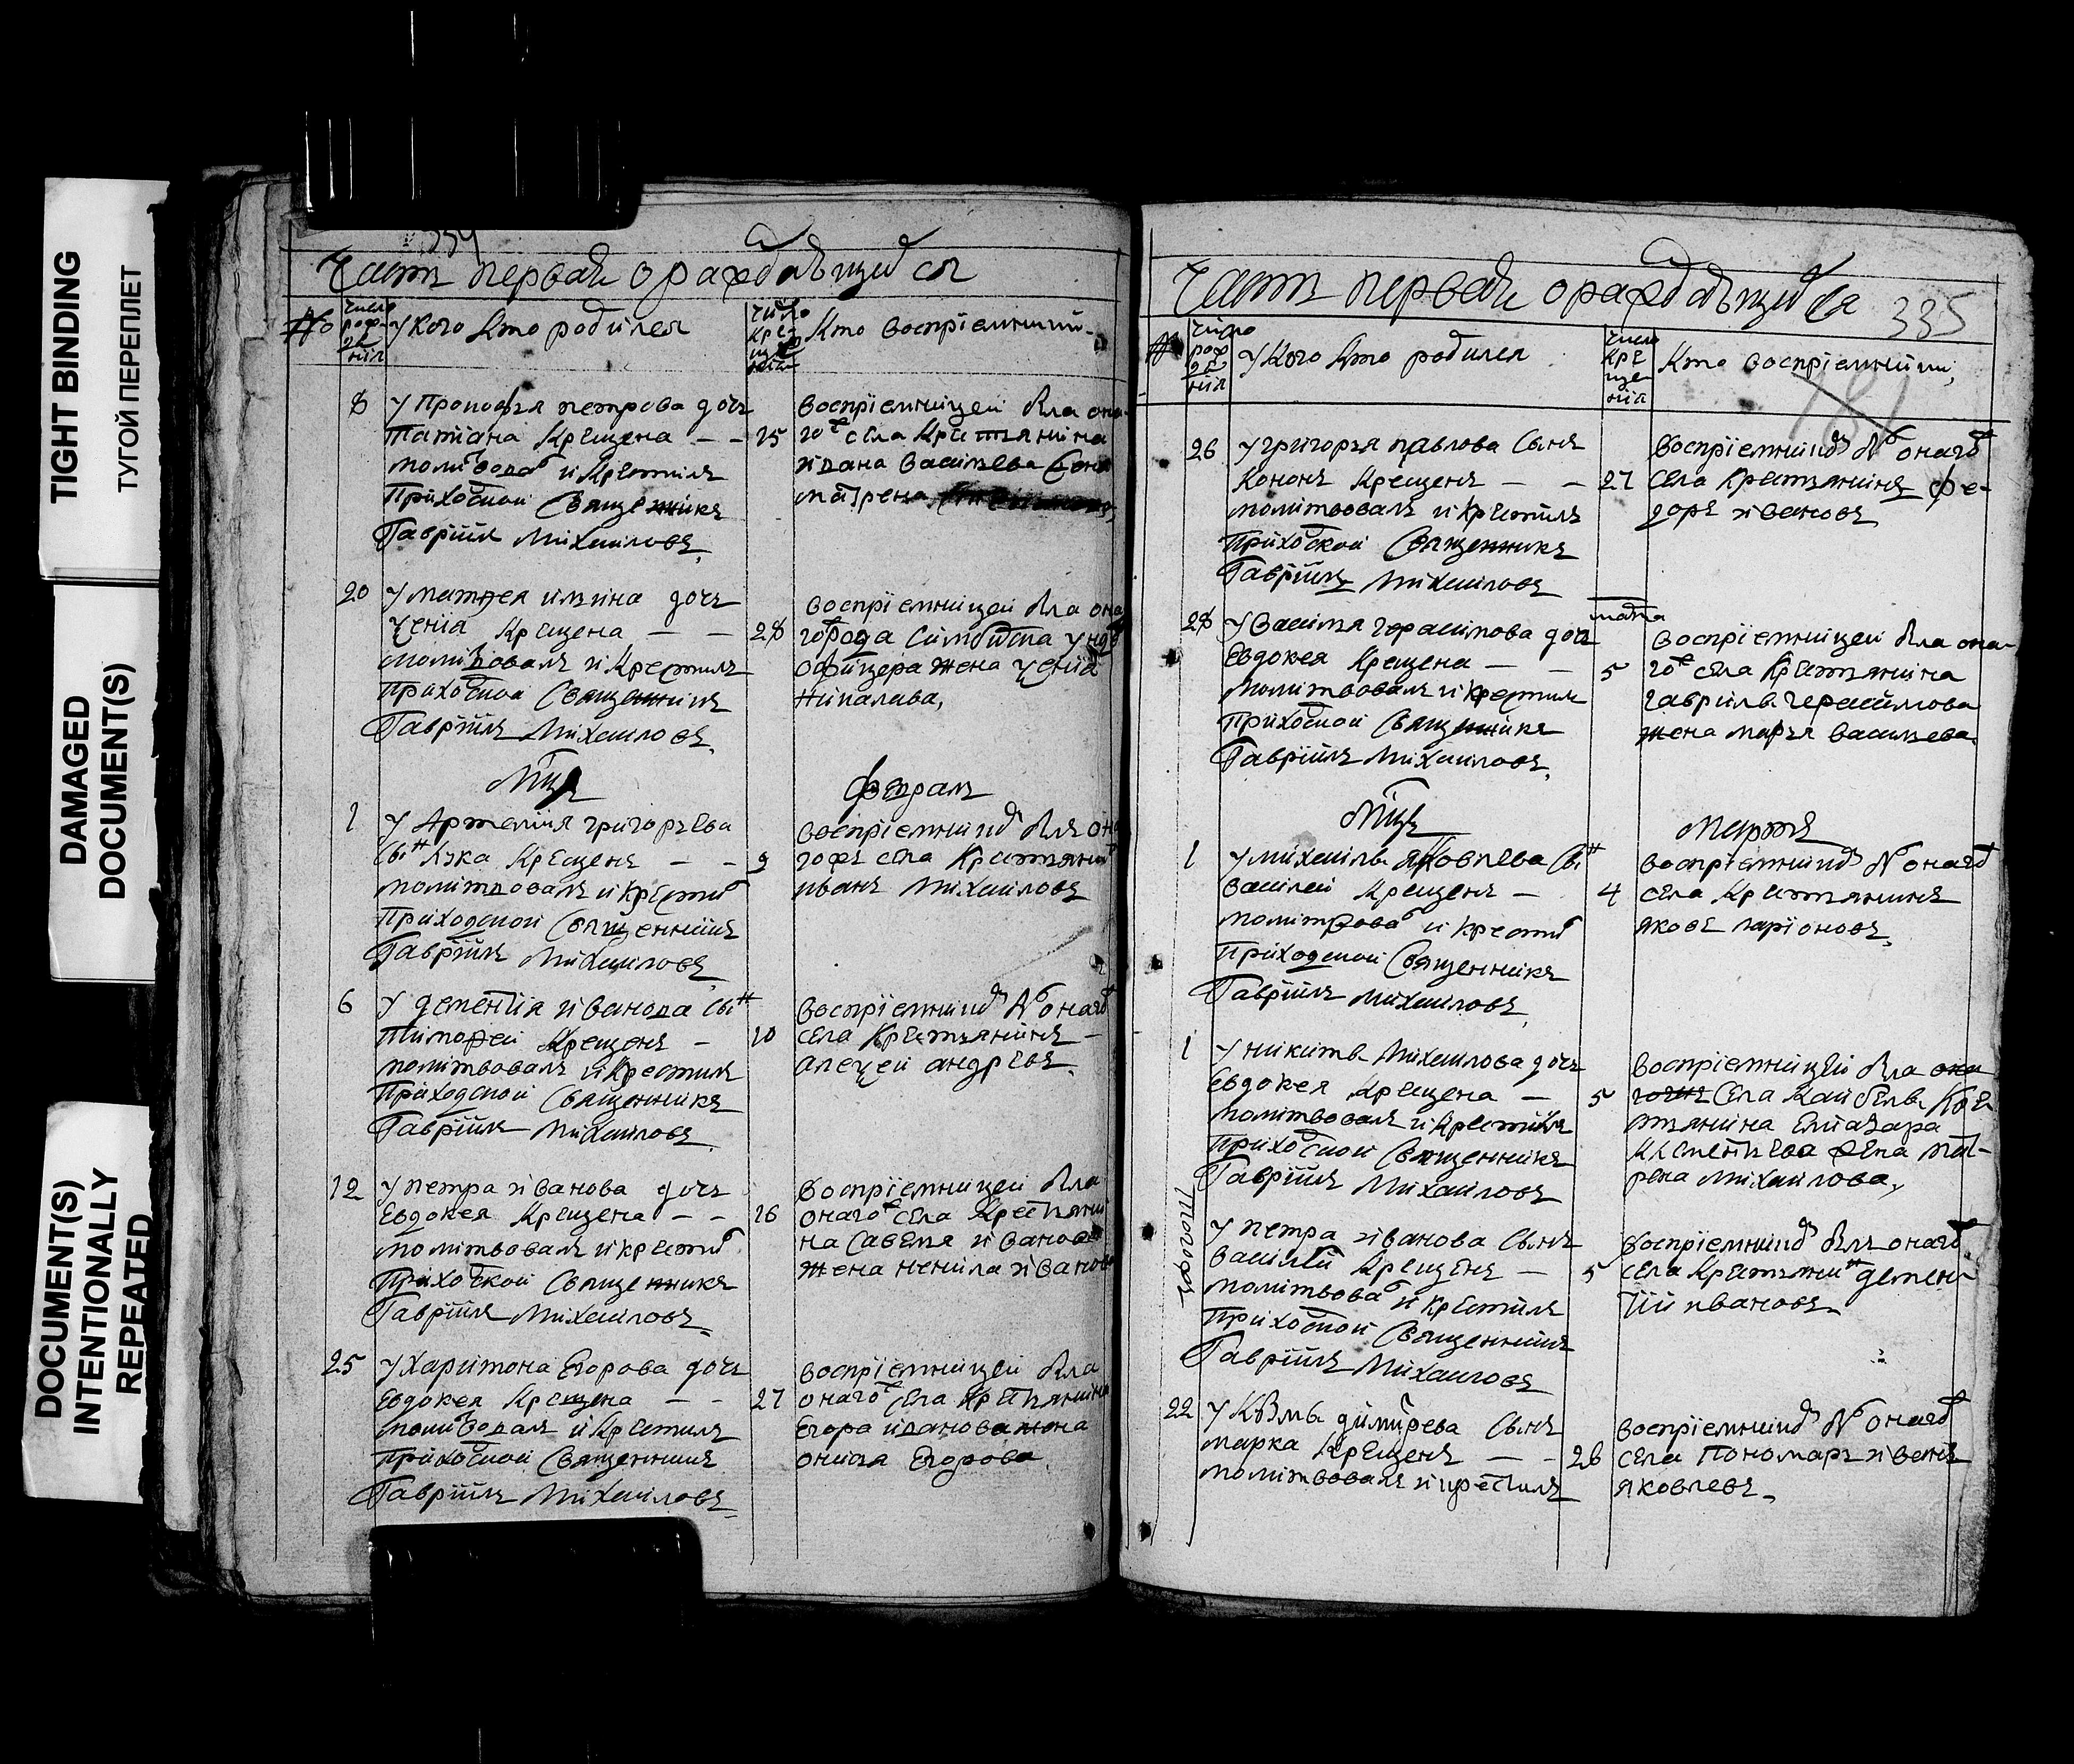 TIGHT BINDING
ТУГОЙ ПЕРЕПЛЕТ
DAMAGED
DOCUMENT(S)
DOCUMENT(S)
INTENTIONALLY
REPEATED
Часть первая о раждающихся
№
число рождения
У кого кто родился
число крещения
Кто восприемники
8
У Прокофья петрова дочь
Татиана Крещена — —
15
молитвовалъ и Крестилъ
Приходской Священникъ
Гаврїилъ Михаиловъ
Воспрїемницей была она-
гожъ села Крестьянина
ивана Васильева
матрена
20
У матфея ильина дочь
Крещена — —
28
молитвовалъ и Крестилъ
приходской Священникъ
Гаврїилъ Михаиловъ
воспрїемницей была
города Симбирска
офицера жена
Мцъ Февраль
1
У Артемия григорьева
сынъ Крещенъ — —
9
молитвовалъ и Крестилъ
Приходской Священникъ
Гаврїилъ Михаиловъ
воспрїемникъ былъ она
гожъ села Крестьянинъ
иванъ Михаиловъ
6
У дементїя иванова сынъ
Тимофей Крещенъ —
10
молитвовалъ и Крестилъ
Приходской Священникъ
Гаврїилъ Михаиловъ
Воспрїемникъ былъ онагожъ
села Крестьянинъ
алексей андреевъ
12
У петра иванова дочь
Евдокея Крещена — —
16
молитвовалъ и крестилъ
Приходской Священникъ
Гаврїилъ Михаиловъ
Воспрїемницей была
онагожъ села Крестьяни
на Савелья иванова
жена ненила иванова
25
У Харитона Егорова дочь
Евдокея Крещена — —
27
молитвовалъ и Крестилъ
приходской Священникъ
Гаврїилъ Михаиловъ
воспрїемницей была
онагожъ села Крестьянина
Егора иванова жена
Егорова
Часть первая о раждающихся
335
№
число рождения
У кого кто родился
число крещения
Кто восприемники
26
У григорья павлова Сынъ
Кононъ Крещенъ — —
27
молитвовалъ и Крестилъ
Приходской Священникъ
Гаврїилъ Михаиловъ
Воспрїемникъ былъ онагожъ
села Крестьянинъ фе-
доръ ивановъ
28
У Василья герасимова дочь
Евдокея Крещена — —
марта
5
молитвовалъ и крестилъ
Приходской Священникъ
Гаврїилъ Михаиловъ
Воспрїемницей была она-
гожъ села Крестьянина
гаврилы герасимова
жена марья васильева
Мцъ Мартъ
1
У михаилы яковлева сынъ
василей Крещенъ —
4
молитвовалъ и крестилъ
Приходской Священникъ
Гаврїилъ Михаиловъ
воспрїемникъ былъ онагожъ
села Крестьянинъ
яковъ ларїоновъ
1
У никиты Михаилова дочь
Евдокея Крещена —
5
молитвовалъ и Крестилъ
Приходской Священникъ
Гаврїилъ Михаиловъ
Воспрїемницей была она
гожъ села Кайбелы Кре-
стьянина Елиазара
мат-
рена Михаилова
Тогожъ
У петра иванова Сынъ
Василей Крещенъ —
5
молитвовалъ и Крестилъ
Приходской Священникъ
Гаврїилъ Михаиловъ
Воспрїемникъ былъ онагожъ
села Крестьянинъ демен-
тїй ивановъ
22
У Кузмы димитрева Сынъ
марка Крещенъ — —
26
молитвовалъ и крестилъ
воспрїемникъ былъ онагожъ
села Пономарь иванъ
яковлевъ